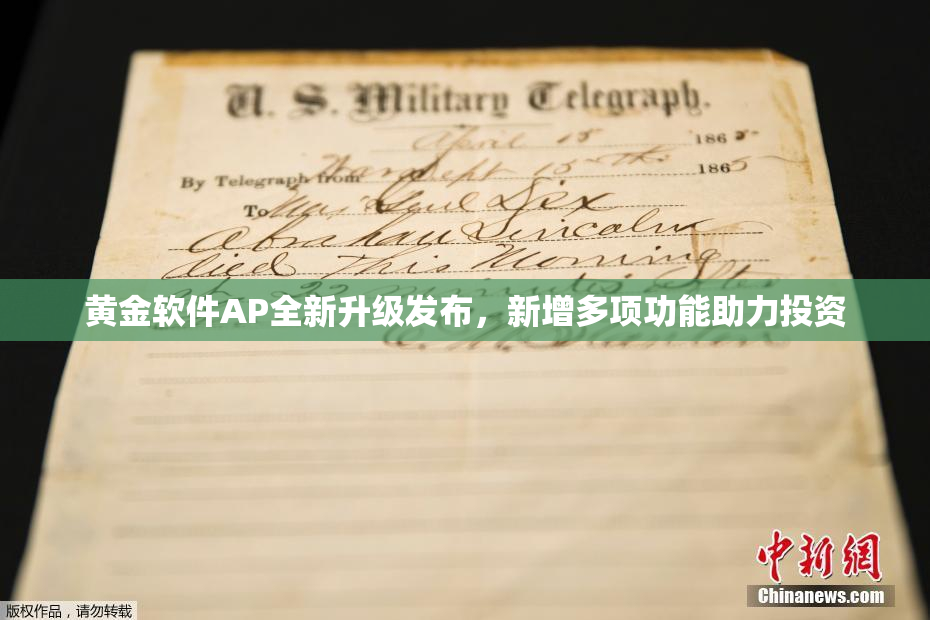 U. S. Military Telegraph.
April 15 1865
By Telegraph from War Dept 15th 1865
To Maj Genl Dix
Abraham Lincoln
died This Morning
at 22 minutes after
黄金软件AP全新升级发布，新增多项功能助力投资
E. M. Stanton
中新网
Chinanews.com
版权作品，请勿转载